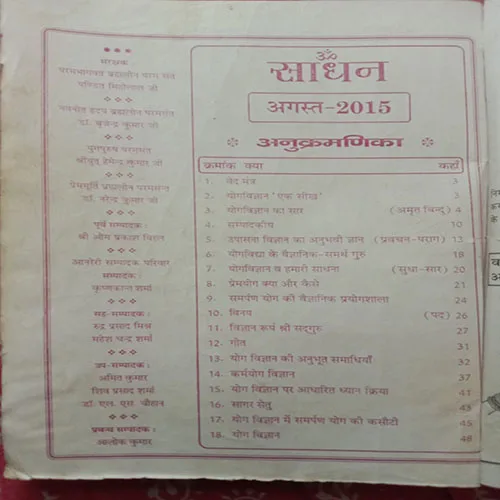 संरक्षक
परमभागवत ब्रह्मलीन परम संत
पण्डित मिहीलाल जी
नवनीत हृदय ब्रह्मलीन परमसंत
डॉ. बृजेन्द्र कुमार जी
युगपुरुष परमसंत
श्रीयुत् हेमेन्द्र कुमार जी
प्रेममूर्ति ब्रह्मलीन परमसंत
डॉ. नरेन्द्र कुमार जी
पूर्व सम्पादक :
श्री ओम प्रकाश विरल
आनरेरी सम्पादक परिवार
सम्पादक :
कृष्णकान्त शर्मा
सह-सम्पादक :
रुद्र प्रसाद मिश्र
महेश चन्द्र शर्मा
उप-सम्पादक :
अमित कुमार
शिव प्रसाद शर्मा
डॉ. एल. एस. चौहान
प्रबन्ध सम्पादक :
आलोक कुमार
ॐ
साधन
अगस्त-2015
अनुक्रमणिका
क्रमांक क्या कहाँ
1. वेद मंत्र 3
2. योगविज्ञान 'एक सीख' 3
3. योगविज्ञान का सार (अमृत बिन्दु) 4
4. सम्पादकीय 10
5. उपासना विज्ञान का अनुभवी ज्ञान (प्रवचन-पराग) 13
6. योगविद्या के वैज्ञानिक-समर्थ गुरु 18
7. योगविज्ञान व हमारी साधना (सुधा-सार) 20
8. प्रेमयोग क्या और कैसे 21
9. समर्पण योग की वैज्ञानिक प्रयोगशाला 24
10. विनय (पद) 26
11. विज्ञान रूपं श्री सद्गुरु 27
12. गीत 31
13. योग विज्ञान की अनुभूत समाधियाँ 32
14. कर्मयोग विज्ञान 37
15. योग विज्ञान पर आधारित ध्यान क्रिया 41
16. सागर सेतु 43
17. योग विज्ञान में समर्पण योग की कसौटी 45
18. योग विज्ञान 48